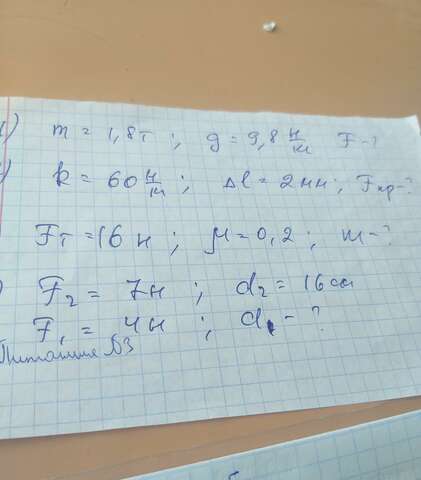 1) m = 1,8т ; g = 9,8 н/м F - ?
) k = 60 н/м ; Δl = 2мм ; Fпр - ?
Fт = 16 н ; μ = 0,2 ; m - ?
) F₂ = 7н ; d₂ = 16см
F₁ = 4н ; d₁ - ?
Питание №3